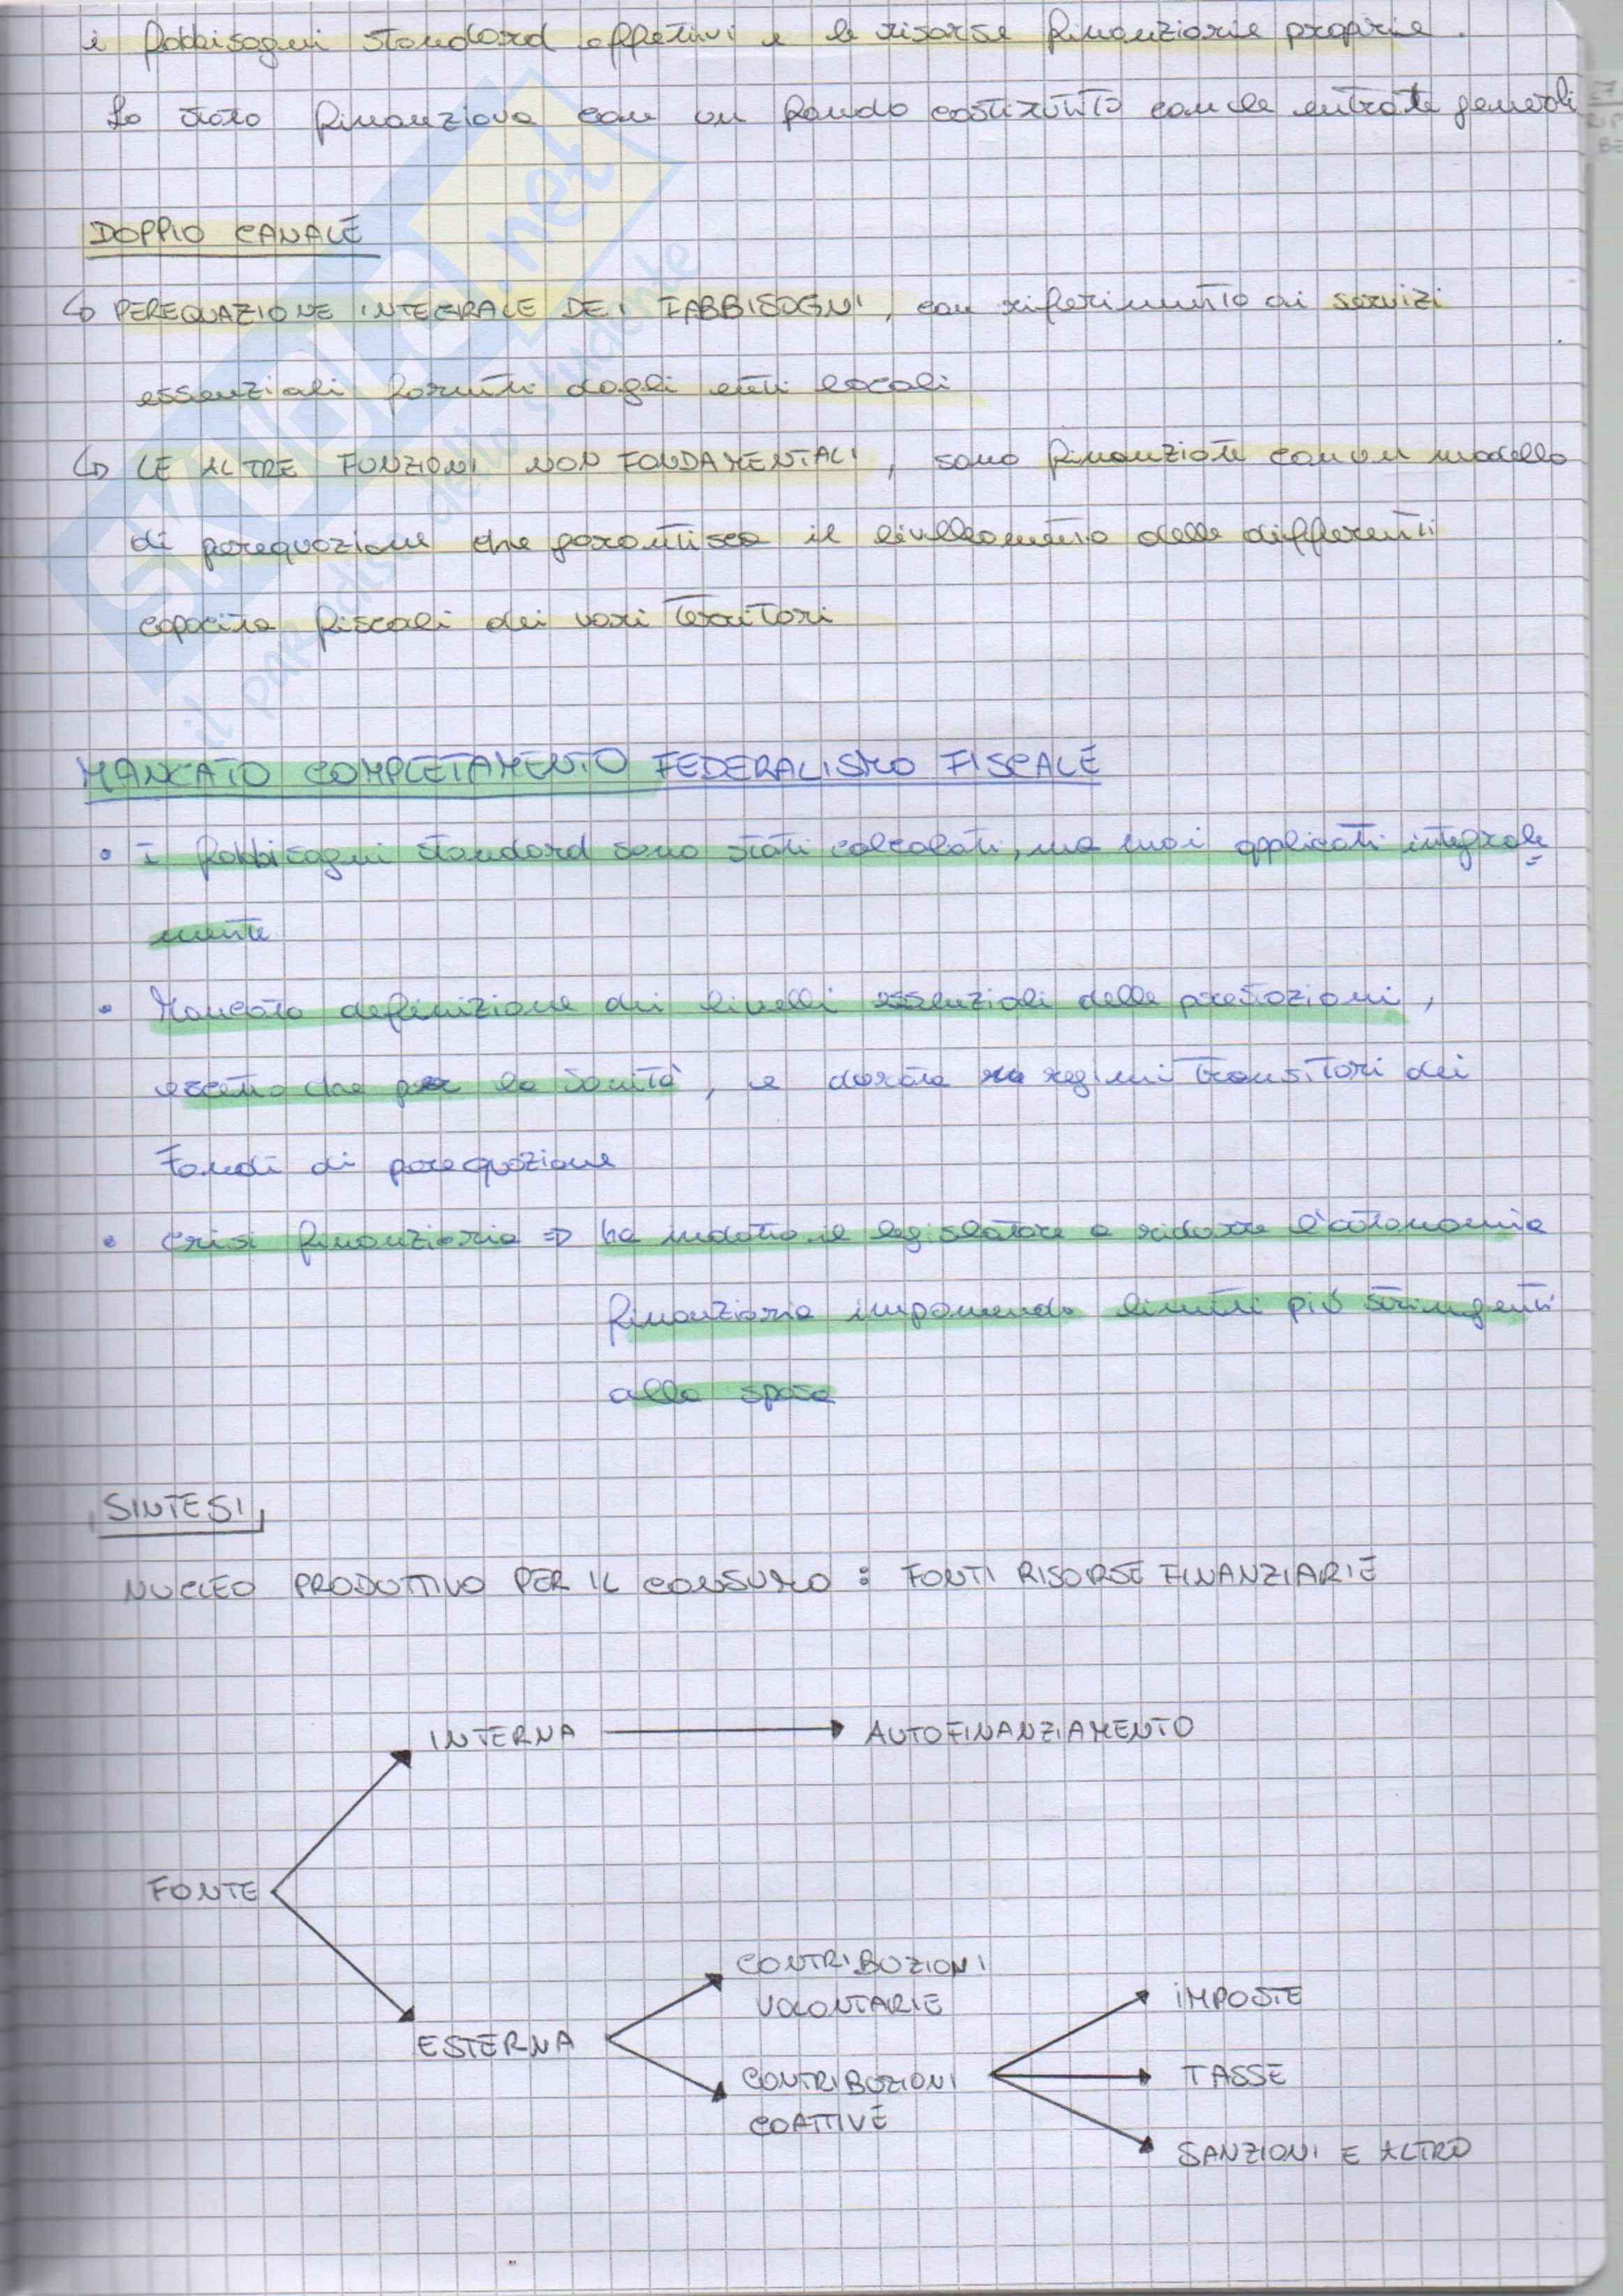 i fabbisogni standard effettivi e le risorse finanziarie proprie.
Lo stato finanziava con un fondo costituito con le entrate generali
DOPPIO CANALE
↳ PEREQUAZIONE INTEGRALE DEI FABBISOGNI, con riferimento ai servizi
essenziali forniti dagli enti locali
↳ LE ALTRE FUNZIONI NON FONDAMENTALI, sono finanziate con un modello
di perequazione che garantisca il livellamento delle differenti
capacità fiscali dei vari territori
MANCATO COMPLETAMENTO FEDERALISMO FISCALE
• i fabbisogni standard sono stati calcolati, ma mai applicati integrale
mente
• Mancata definizione dei livelli essenziali delle prestazioni,
eccetto che per la sanità, e durata regimi transitori dei
Fondi di perequazione
• crisi finanziaria ⇒ ha indotto il legislatore a ridurre l'autonomia
finanziaria imponendo limiti più stringenti
alla spesa
SINTESI
NUCLEO PRODUTTIVO PER IL CONSUMO : FONTI RISORSE FINANZIARIE
INTERNA → AUTOFINANZIAMENTO
FONTE
CONTRIBUZIONI
VOLONTARIE
IMPOSTE
ESTERNA
CONTRIBUZIONI
COATTIVE
TASSE
SANZIONI E ALTRO
SKUOLA.net
il paradiso dello studente